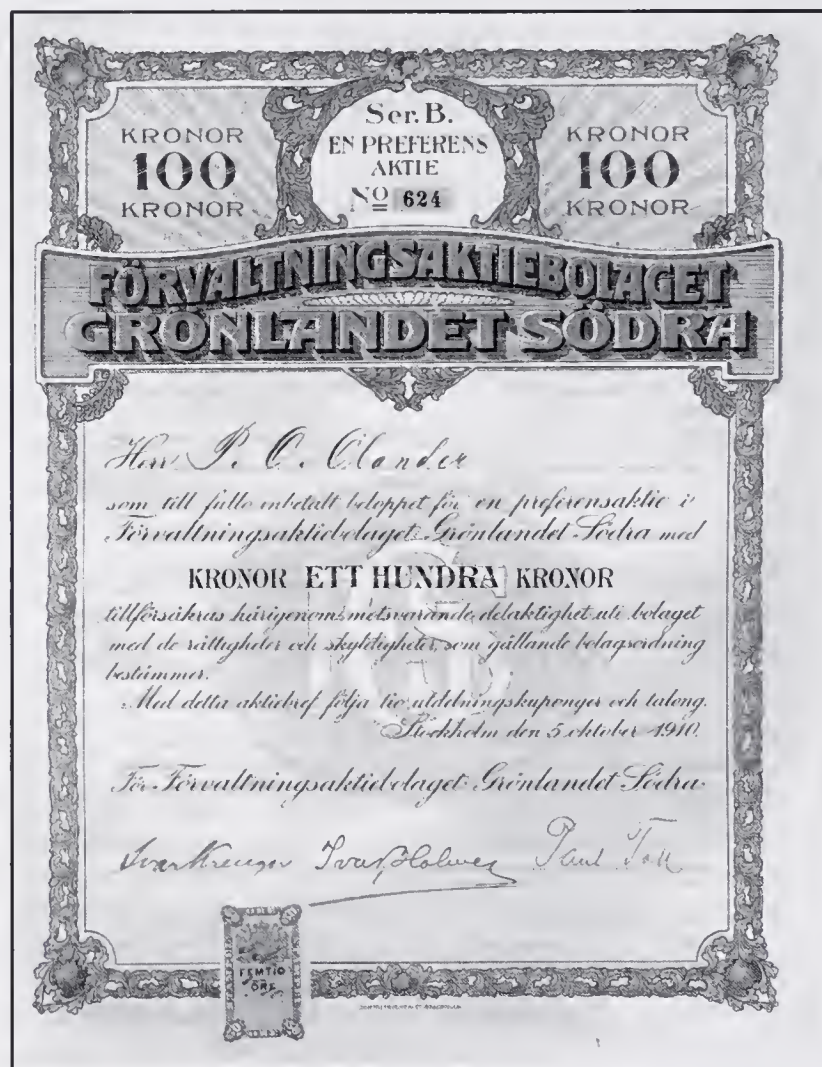 KRONOR
100
KRONOR
Ser. B.
EN PREFERENS
AKTIE
No 624
KRONOR
100
KRONOR
FÖRVALTNINGSAKTIEBOLAGET
GRÖNLANDET SÖDRA
Herr P. O. Olander
som till fullo inbetalt beloppet för en preferensaktie i
Förvaltningsaktiebolaget Grönlandet Södra med
KRONOR ETT HUNDRA KRONOR
tillförsäkras härigenom motsvarande delaktighet uti bolaget
med de rättigheter och skyldigheter, som gällande bolagsordning
bestämmer.
Med detta aktiebref följa tio utdelningskuponger och talong.
Stockholm den 5 oktober 1910.
För Förvaltningsaktiebolaget Grönlandet Södra
Ivar Kreuger Paul Toll
FEMTIO
ÖRE